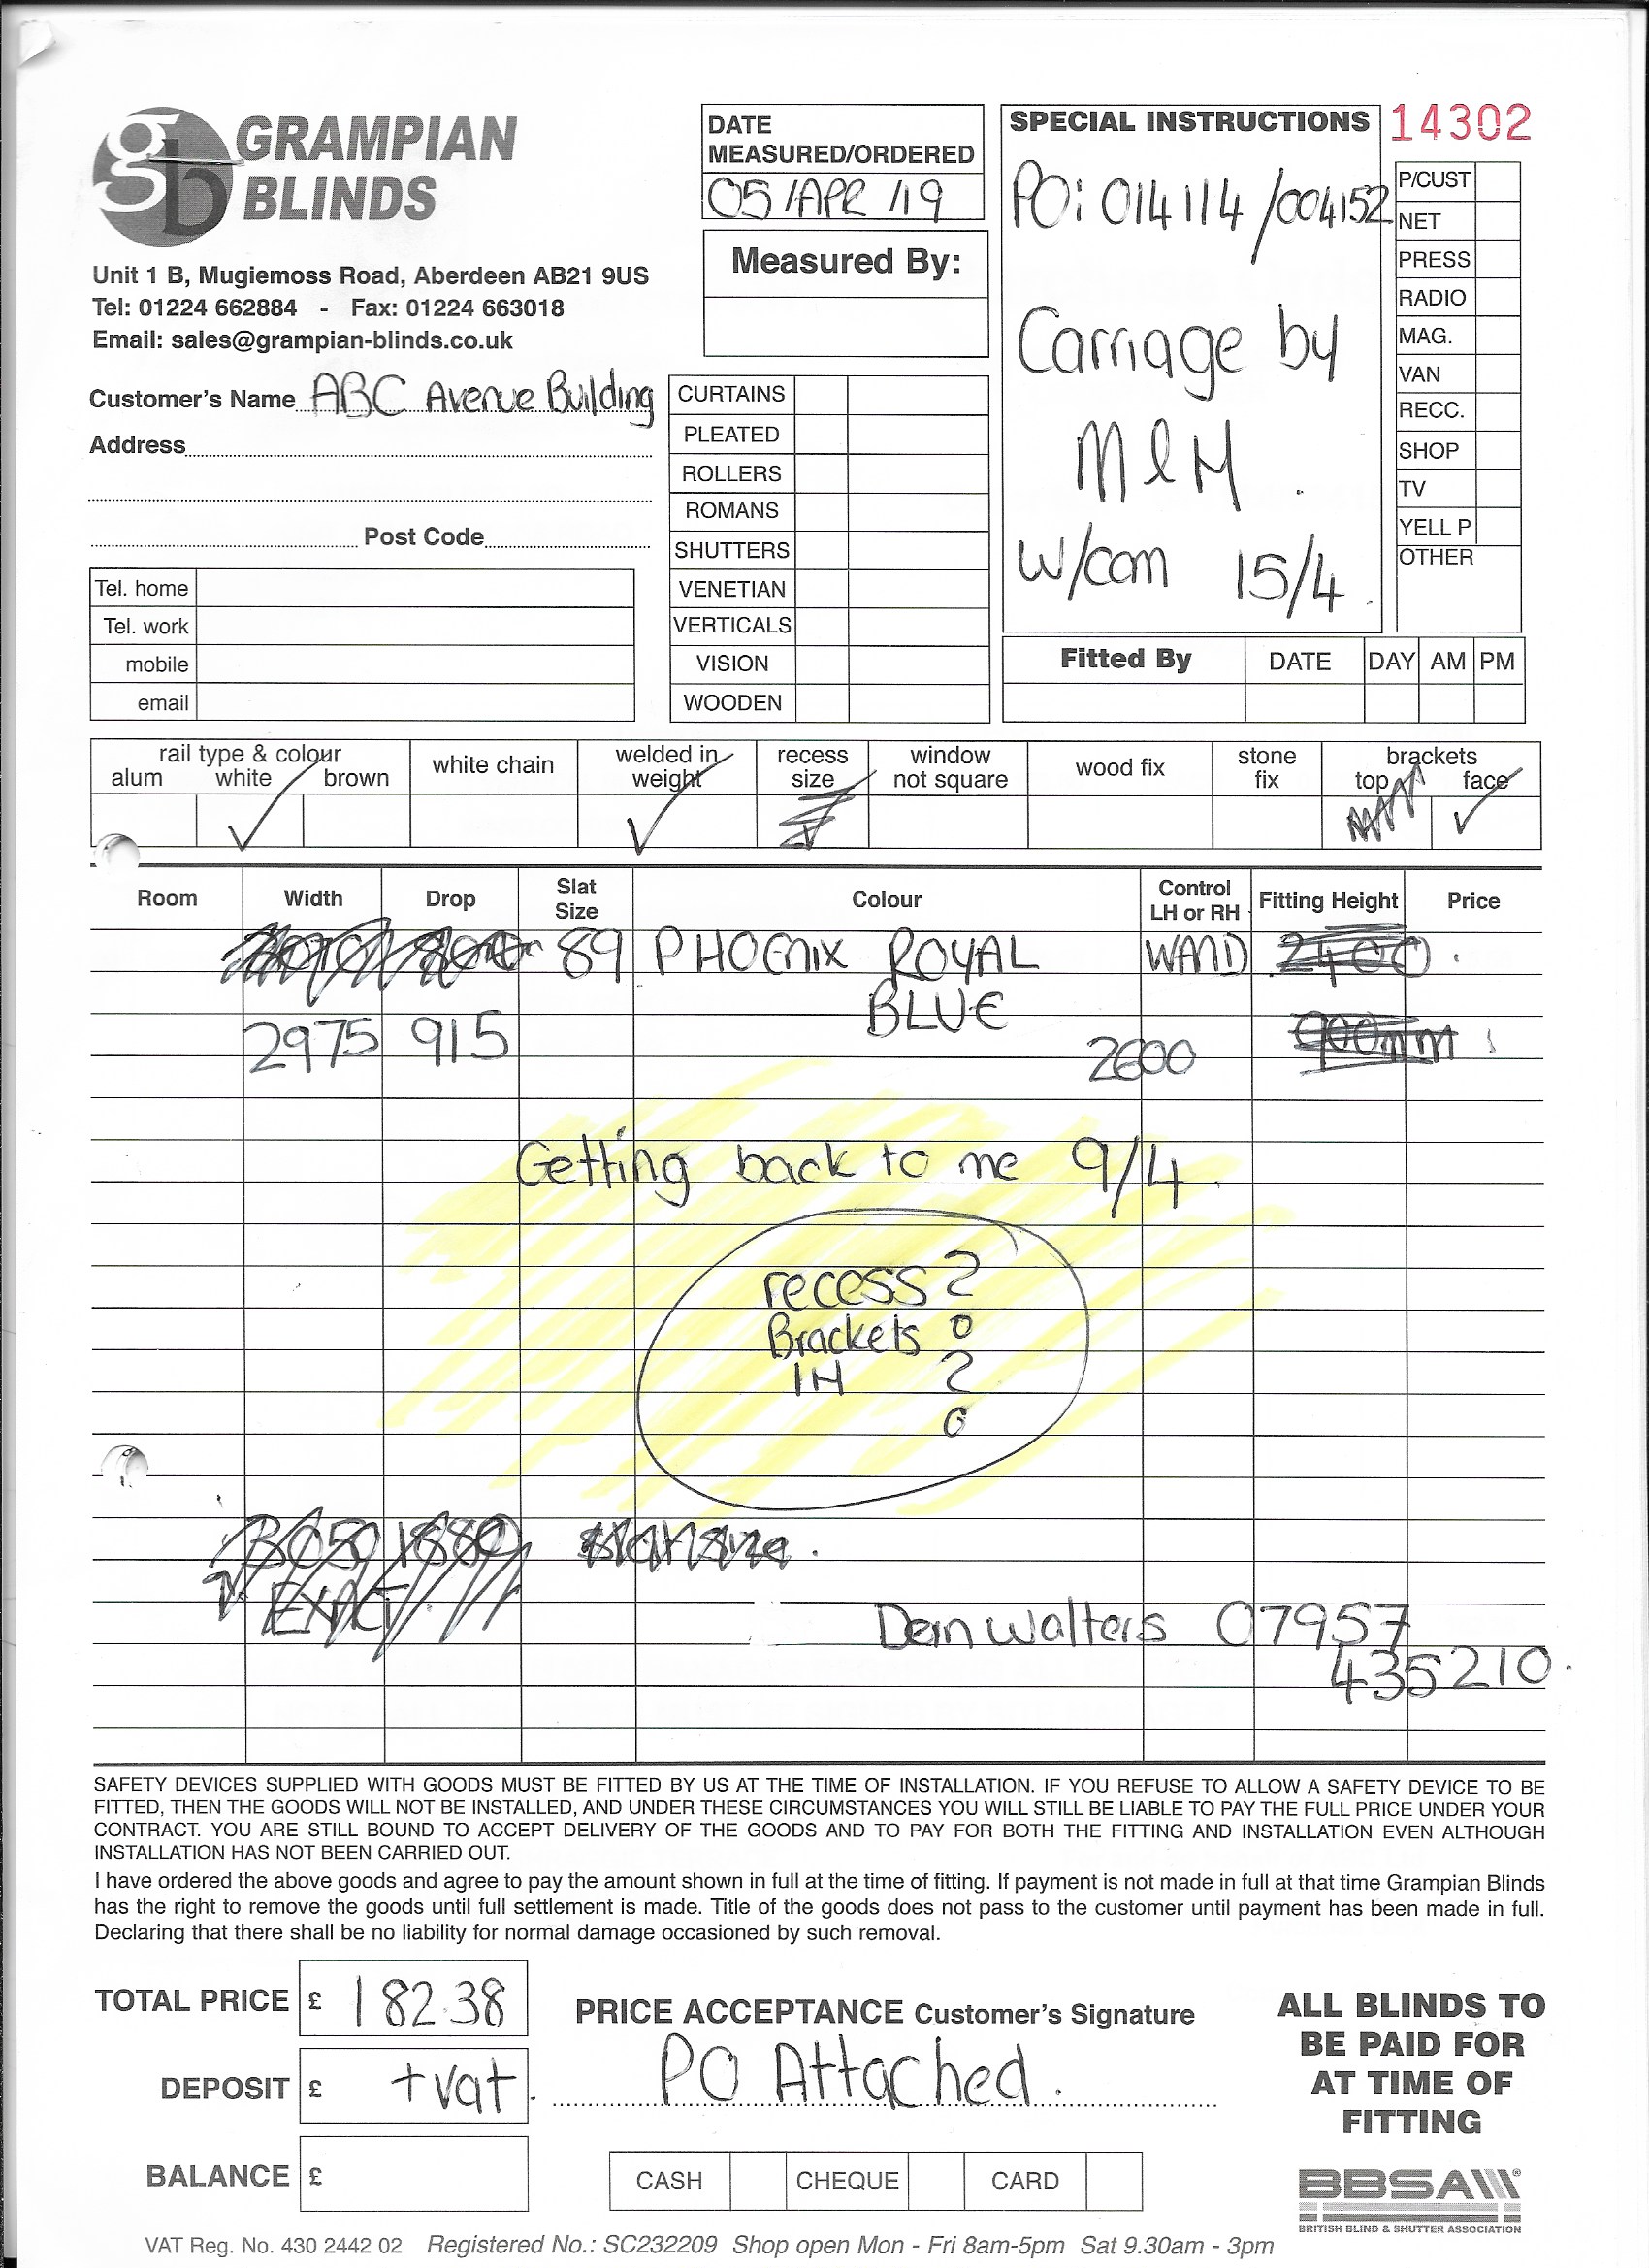 gb GRAMPIAN
BLINDS
Unit 1 B, Mugiemoss Road, Aberdeen AB21 9US
Tel: 01224 662884 - Fax: 01224 663018
Email: sales@grampian-blinds.co.uk
Customer's Name ABC Avenue Building
Address
Post Code
Tel. home
Tel. work
mobile
email
DATE
MEASURED/ORDERED
05/APR/19
Measured By:
CURTAINS
PLEATED
ROLLERS
ROMANS
SHUTTERS
VENETIAN
VERTICALS
VISION
WOODEN
SPECIAL INSTRUCTIONS
PO: 014114/004152
Carriage by
M&M.
w/com 15/4.
14302
P/CUST
NET
PRESS
RADIO
MAG.
VAN
RECC.
SHOP
TV
YELL P
OTHER
Fitted By DATE DAY AM PM
rail type & colour
alum white brown
white chain
welded in
weight
recess
size
window
not square
wood fix
stone
fix
brackets
top face
Room Width Drop Slat Size Colour Control LH or RH Fitting Height Price
89 PHOENIX ROYAL WAND 2400
BLUE
2975 915 2600 900mm
Getting back to me 9/4.
recess ?
Brackets
IN ?
3050 1880
EXACT
Dean Walters 07957
435210.
SAFETY DEVICES SUPPLIED WITH GOODS MUST BE FITTED BY US AT THE TIME OF INSTALLATION. IF YOU REFUSE TO ALLOW A SAFETY DEVICE TO BE
FITTED, THEN THE GOODS WILL NOT BE INSTALLED, AND UNDER THESE CIRCUMSTANCES YOU WILL STILL BE LIABLE TO PAY THE FULL PRICE UNDER YOUR
CONTRACT. YOU ARE STILL BOUND TO ACCEPT DELIVERY OF THE GOODS AND TO PAY FOR BOTH THE FITTING AND INSTALLATION EVEN ALTHOUGH
INSTALLATION HAS NOT BEEN CARRIED OUT.
I have ordered the above goods and agree to pay the amount shown in full at the time of fitting. If payment is not made in full at that time Grampian Blinds
has the right to remove the goods until full settlement is made. Title of the goods does not pass to the customer until payment has been made in full.
Declaring that there shall be no liability for normal damage occasioned by such removal.
TOTAL PRICE £ 182.38
DEPOSIT £ +vat.
BALANCE £
PRICE ACCEPTANCE Customer's Signature
PO Attached.
CASH CHEQUE CARD
ALL BLINDS TO
BE PAID FOR
AT TIME OF
FITTING
BBSA
BRITISH BLIND & SHUTTER ASSOCIATION
VAT Reg. No. 430 2442 02 Registered No.: SC232209 Shop open Mon - Fri 8am-5pm Sat 9.30am - 3pm